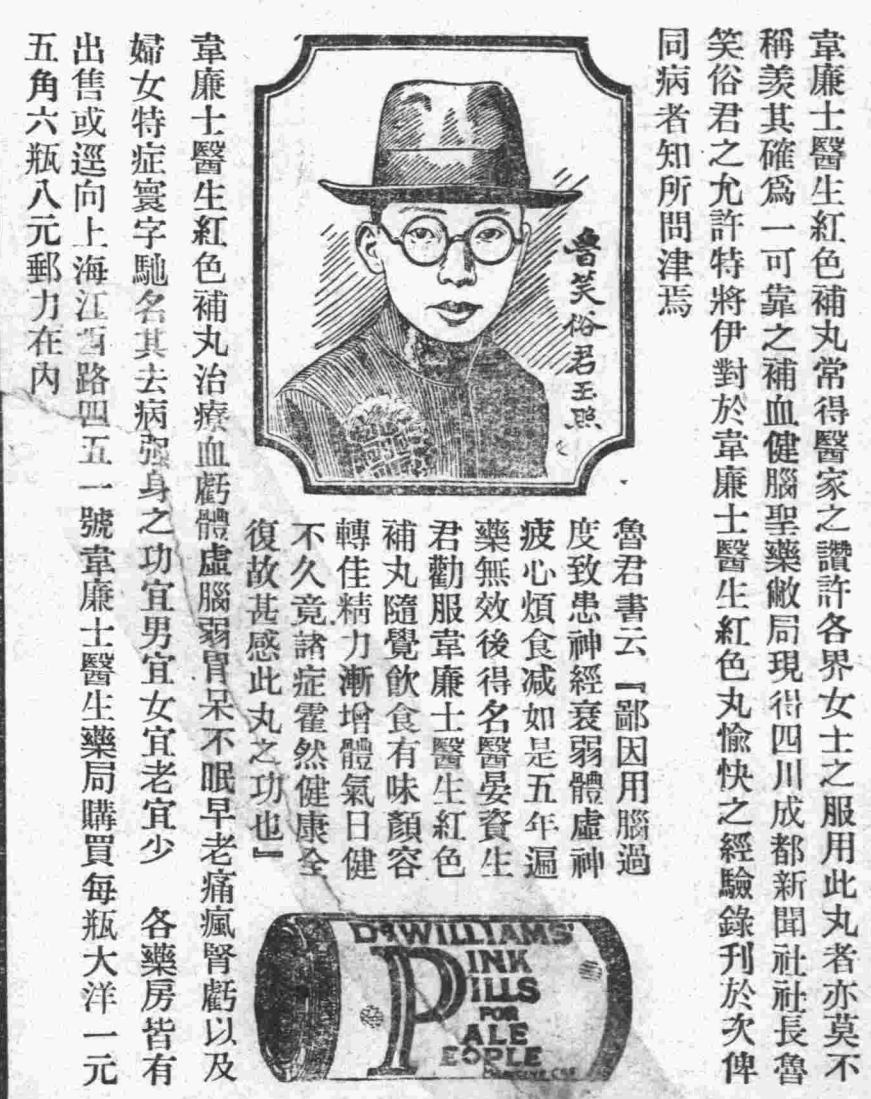 韋廉士醫生紅色補丸常得醫家之讚許各界女士之服用此丸者亦莫不
稱羨其確爲一可靠之補血健腦聖藥敝局現得四川成都新聞社社長魯
笑俗君之允許特將伊對於韋廉士醫生紅色丸愉快之經驗錄刊於次俾
同病者知所問津焉
魯笑俗君玉照
魯君書云『鄙因用腦過
度致患神經衰弱體虛神
疲心煩食减如是五年遍
藥無效後得名醫晏資生
君勸服韋廉士醫生紅色
補丸隨覺飲食有味顏容
轉佳精力漸增體氣日健
不久竟諸症霍然健康全
復故甚感此丸之功也』
DR WILLIAMS'
PINK
PILLS
FOR
PALE
PEOPLE
韋廉士醫生紅色補丸治療血虧體虛腦弱胃呆不眠早老痛瘋腎虧以及
婦女特症寰字馳名其去病强身之功宜男宜女宜老宜少 各藥房皆有
出售或逕向上海江西路四五一號韋廉士醫生藥局購買每瓶大洋一元
五角六瓶八元郵力在內